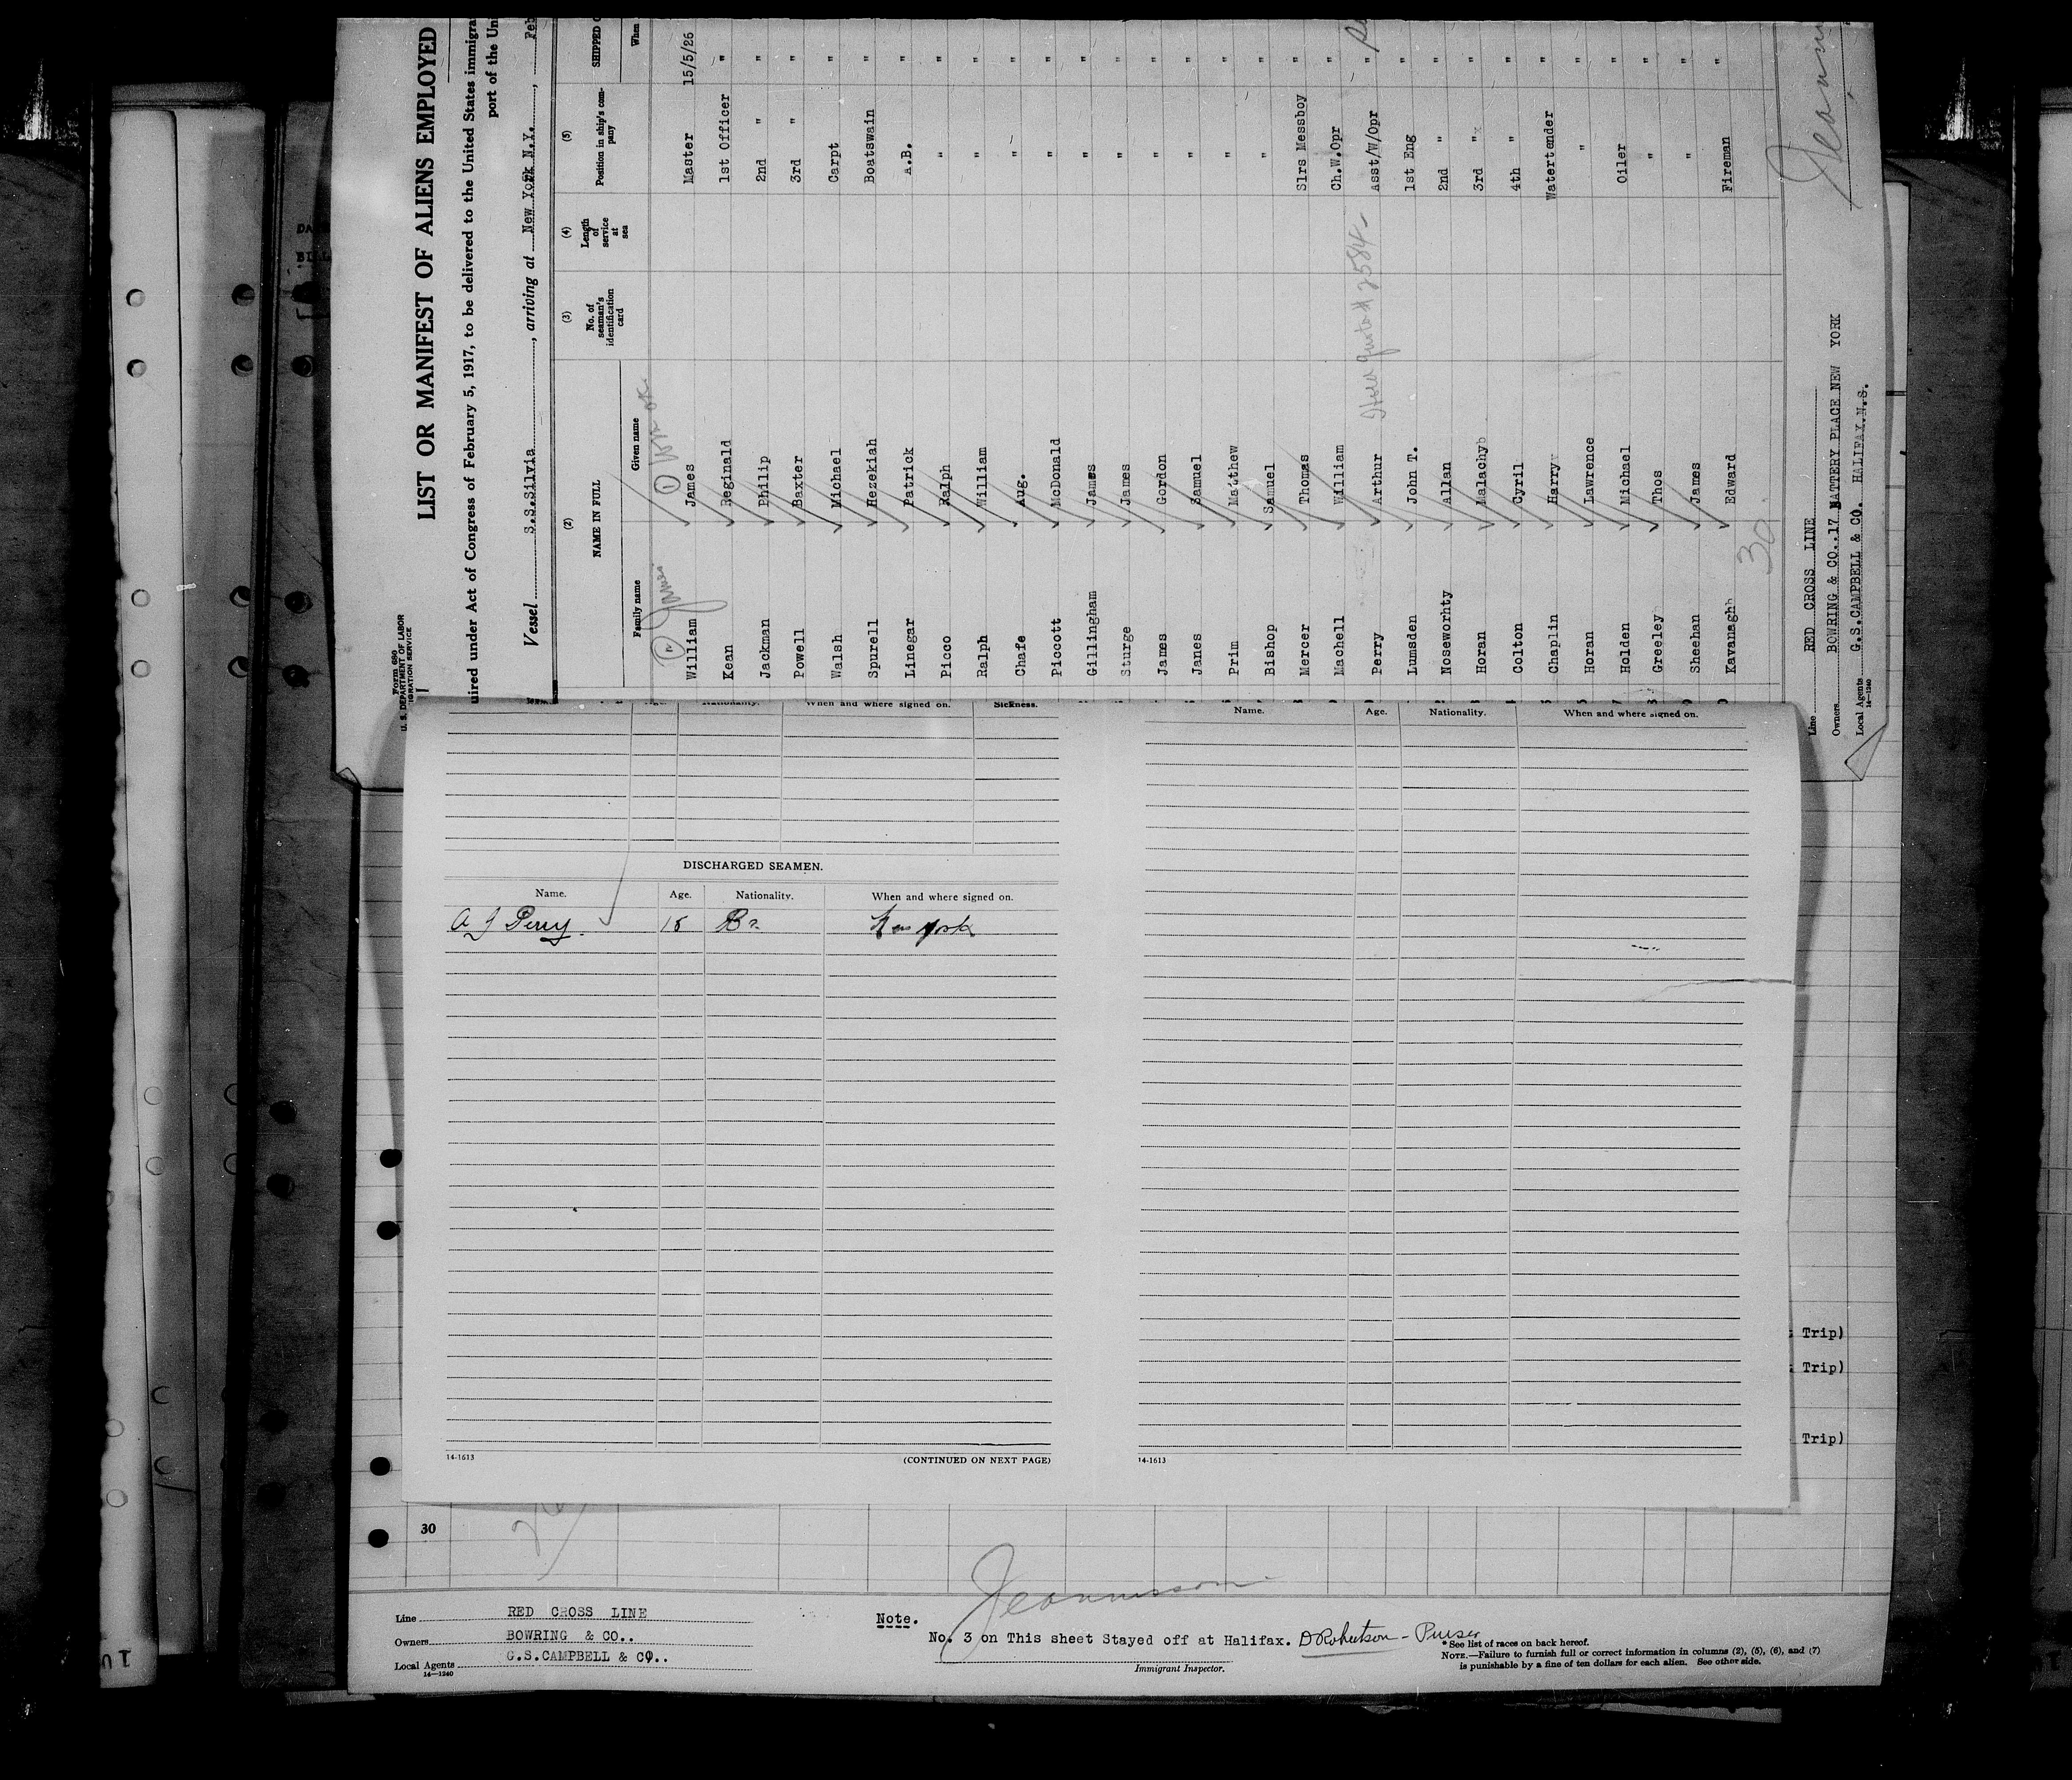 Form 680
U. S. DEPARTMENT OF LABOR
IGRATION SERVICE
LIST OR MANIFEST OF ALIENS EMPLOYED
uired under Act of Congress of February 5, 1917, to be delivered to the United States immigra
port of the Un
Vessel S.S.Silvia, arriving at New York N.Y., Feb
(2) (3) (4) (5)
NAME IN FULL No. of seaman's identification card Length of service at sea Position in ship's company SHIPPED
Family name Given name When
William James Master 15/5/26
Kean Reginald 1st Officer "
Jackman Philip 2nd " "
Powell Baxter 3rd " "
Walsh Michael Carpt "
Spurell Hezekiah Boatswain "
Linegar Patrick A.B. "
Picco Ralph " "
Ralph William " "
Chafe Aug. " "
Piccott McDonald " "
Gillingham James " "
Sturge James " "
James Gordon " "
Janes Samuel " "
Prim Matthew " "
Bishop Samuel " "
Mercer Thomas Slrs Messboy "
Machell William Ch.W.Opr "
Perry Arthur Asst/W/Opr "
Lumsden John T. 1st Eng "
Noseworhty Allan 2nd " "
Horan Malachyb 3rd " "
Colton Cyril 4th " "
Chaplin Harry Watertender "
Horan Lawrence " "
Holden Michael Oiler "
Greeley Thos " "
Sheehan James " "
Kavanagh Edward Fireman "
30
Line RED CROSS LINE
Owners BOWRING & CO..17 BATTERY PLACE NEW YORK
Local Agents G.S.CAMPBELL & CO. HALIFAX.N.S.
14-1240
Age. Nationality. When and where signed on. Sickness.
DISCHARGED SEAMEN.
Name. Age. Nationality. When and where signed on.
A J Perry. 18 Br. New York
14-1613
(CONTINUED ON NEXT PAGE)
Name. Age. Nationality. When and where signed on.
14-1613
Trip)
Trip)
Trip)
30
Line RED CROSS LINE
Owners BOWRING & CO..
Local Agents G.S.CAMPBELL & CO..
14-1240
Note.
No. 3 on This sheet Stayed off at Halifax. D Robertson - Purser
Immigrant Inspector.
* See list of races on back hereof.
NOTE.—Failure to furnish full or correct information in columns (2), (5), (6), and (7)
is punishable by a fine of ten dollars for each alien. See other side.